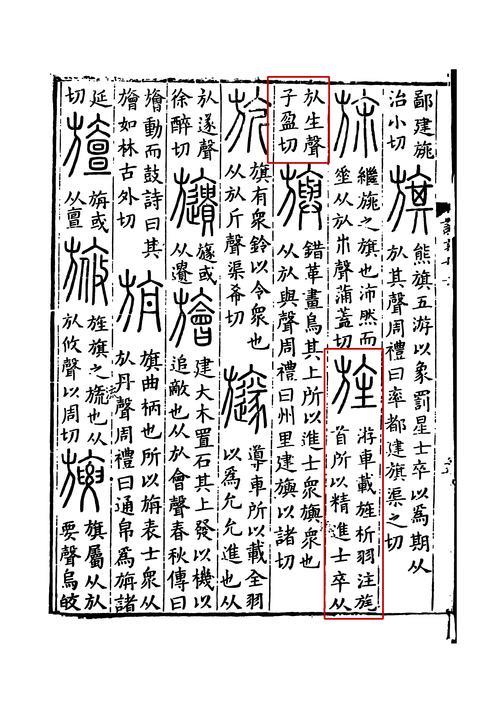 鄙建旐
治小切
旗
熊旗五游以象罰星士卒以為期从
㫃其聲周禮曰率都建旗渠之切
旆
繼旐之旗也沛然而
垂从㫃𣎵聲蒲蓋切
旌
游車載旌析羽注旄
首所以精進士卒从
㫃生聲
子盈切
旟
錯革畫鳥其上所以進士眾旟眾也
从㫃與聲周禮曰州里建旟以諸切
旂
旗有眾鈴以令眾也
从㫃斤聲渠希切
旞
導車所以載全羽
以為允允進也从
㫃遂聲
徐醉切
𣄚
旞或
从遺
旝
建大木置石其上發以機以
追敵也从㫃會聲春秋傳曰
旝動而鼓詩曰其
旝如林古外切
旃
旗曲柄也所以旃表士眾从
㫃丹聲周禮曰通帛為旃諸
延
切
旜
旃或
从亶
㫍
旌旗之旒也从
㫃攸聲以周切
旗屬从㫃
要聲烏皎